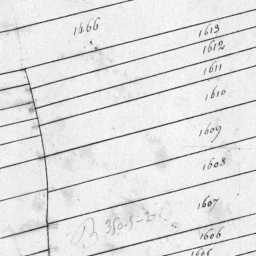 1466
1613
1612
1611
1610
1609
1608
1607
1606
1605